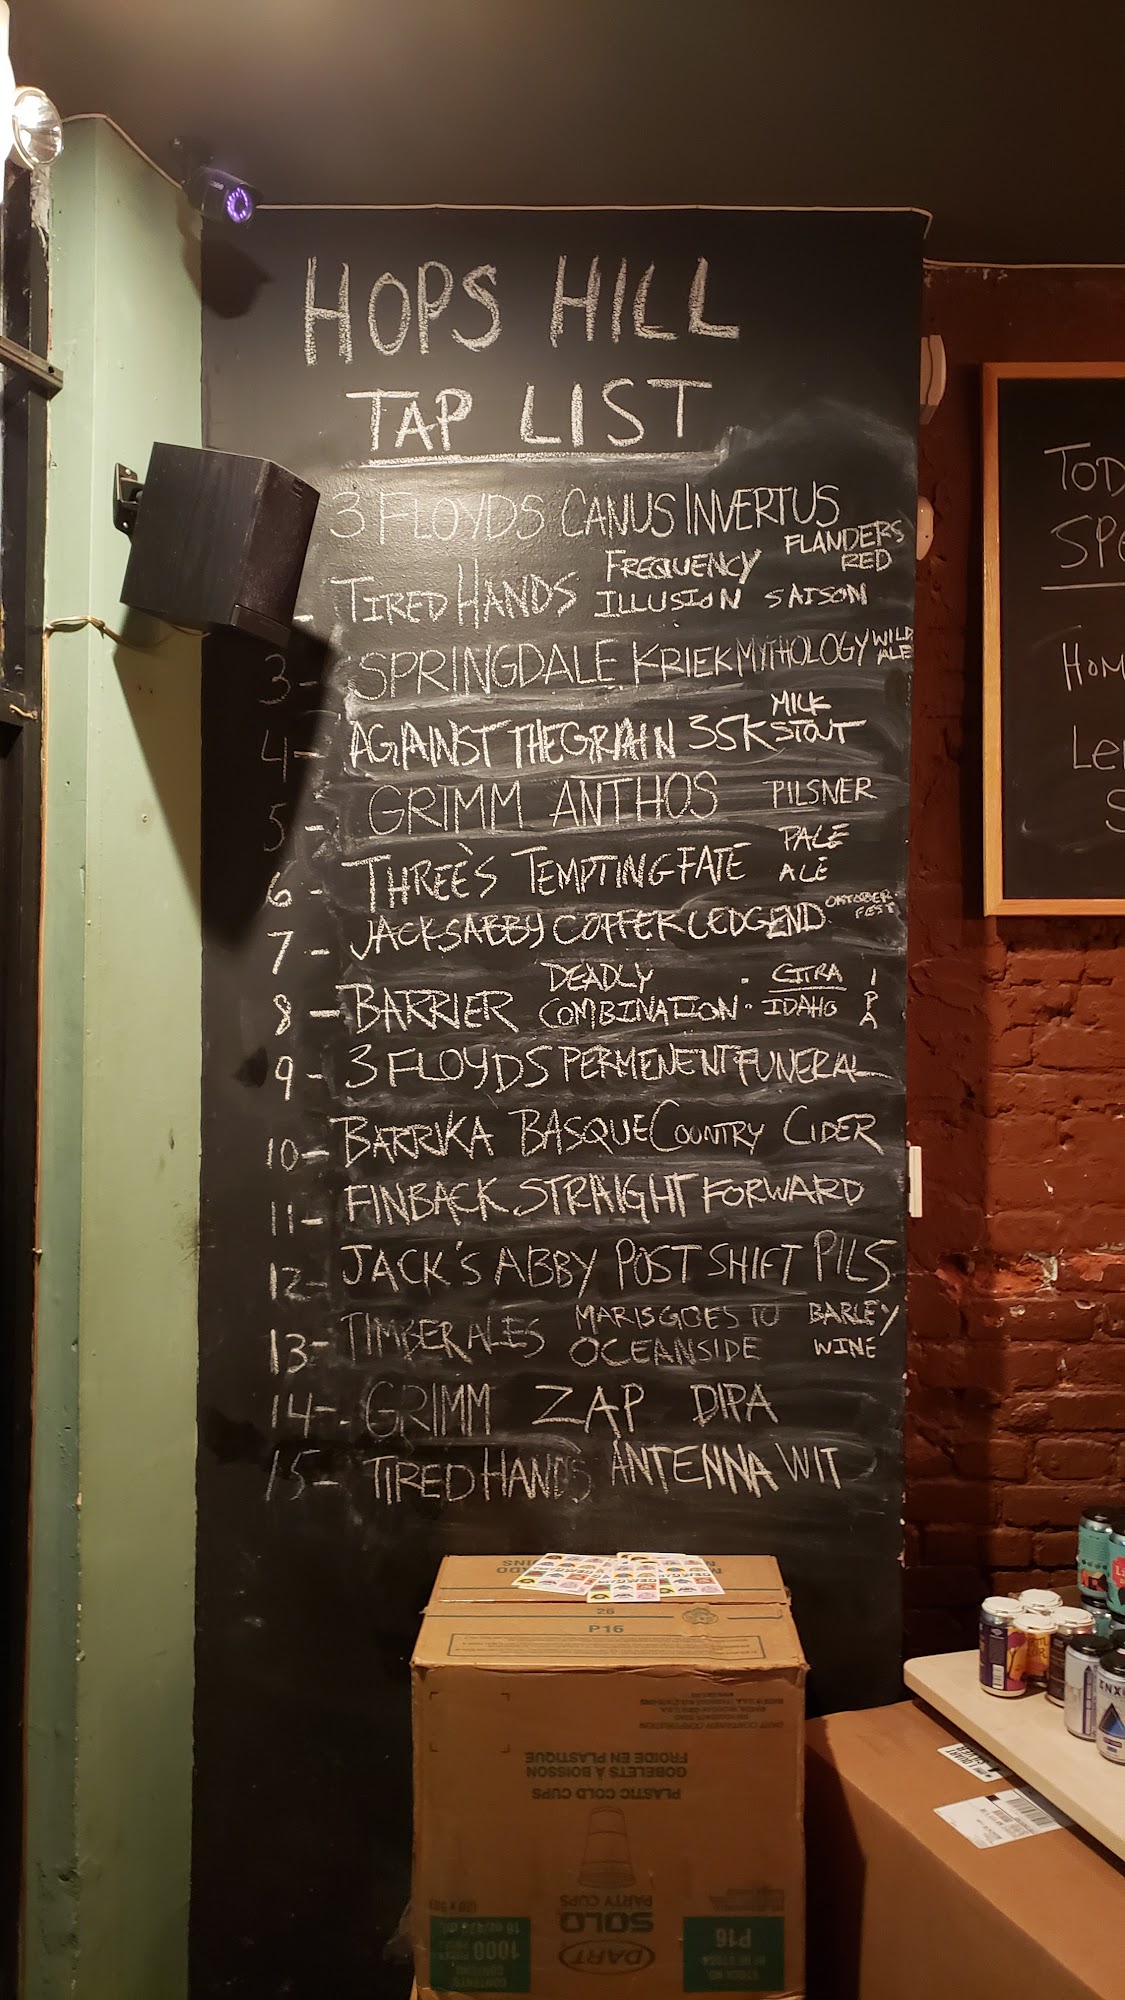 HOPS HILL
TAP LIST
3 FLOYDS CANUS INVERTUS FLANDERS RED
- TIRED HANDS FREQUENCY ILLUSION SAISON
3- SPRINGDALE KRIEK MYTHOLOGY WILD ALE
4- AGAINST THE GRAIN 35K MILK STOUT
5 - GRIMM ANTHOS PILSNER
6 - THREE'S TEMPTING FATE PALE ALE
7 - JACKS ABBY COFFEKCLEDGEND OKTOBER FEST
8 - BARRIER DEADLY COMBINATION : CITRA IDAHO IPA
9 - 3 FLOYDS PERMENENT FUNERAL
10- BARRIKA BASQUE COUNTRY CIDER
11 - FINBACK STRAIGHT FORWARD
12- JACK'S ABBY POST SHIFT PILS
13- TIMBER ALES MARIS GOES TO OCEANSIDE BARLEY WINE
14- GRIMM ZAP DIPA
15- TIRED HANDS ANTENNA WIT
TOD
SPE
HOM
LE
S
26
P16
FROIDE EN PLASTIQUE
GOBELETS À BOISSON
PLASTIC COLD CUPS
PARTY CUPS
SOLO
DART
P16
1000